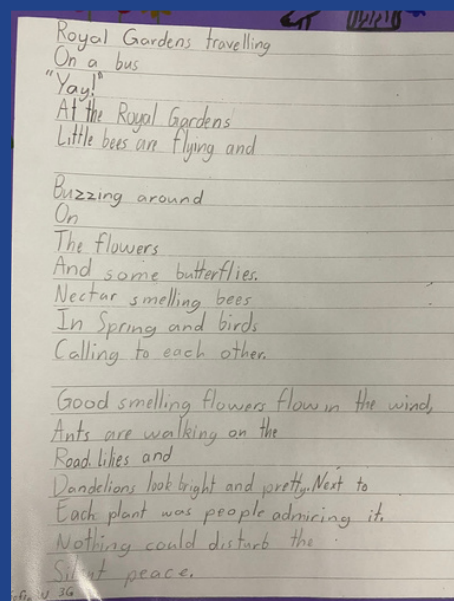 Royal Gardens travelling
On a bus
"Yay!"
At the Royal Gardens
Little bees are flying and
Buzzing around
On
The flowers
And some butterflies.
Nectar smelling bees
In Spring and birds
Calling to each other.
Good smelling flowers flow in the wind,
Ants are walking on the
Road. Lilies and
Dandelions look bright and pretty. Next to
Each plant was people admiring it.
Nothing could disturb the
Silent peace.
3G